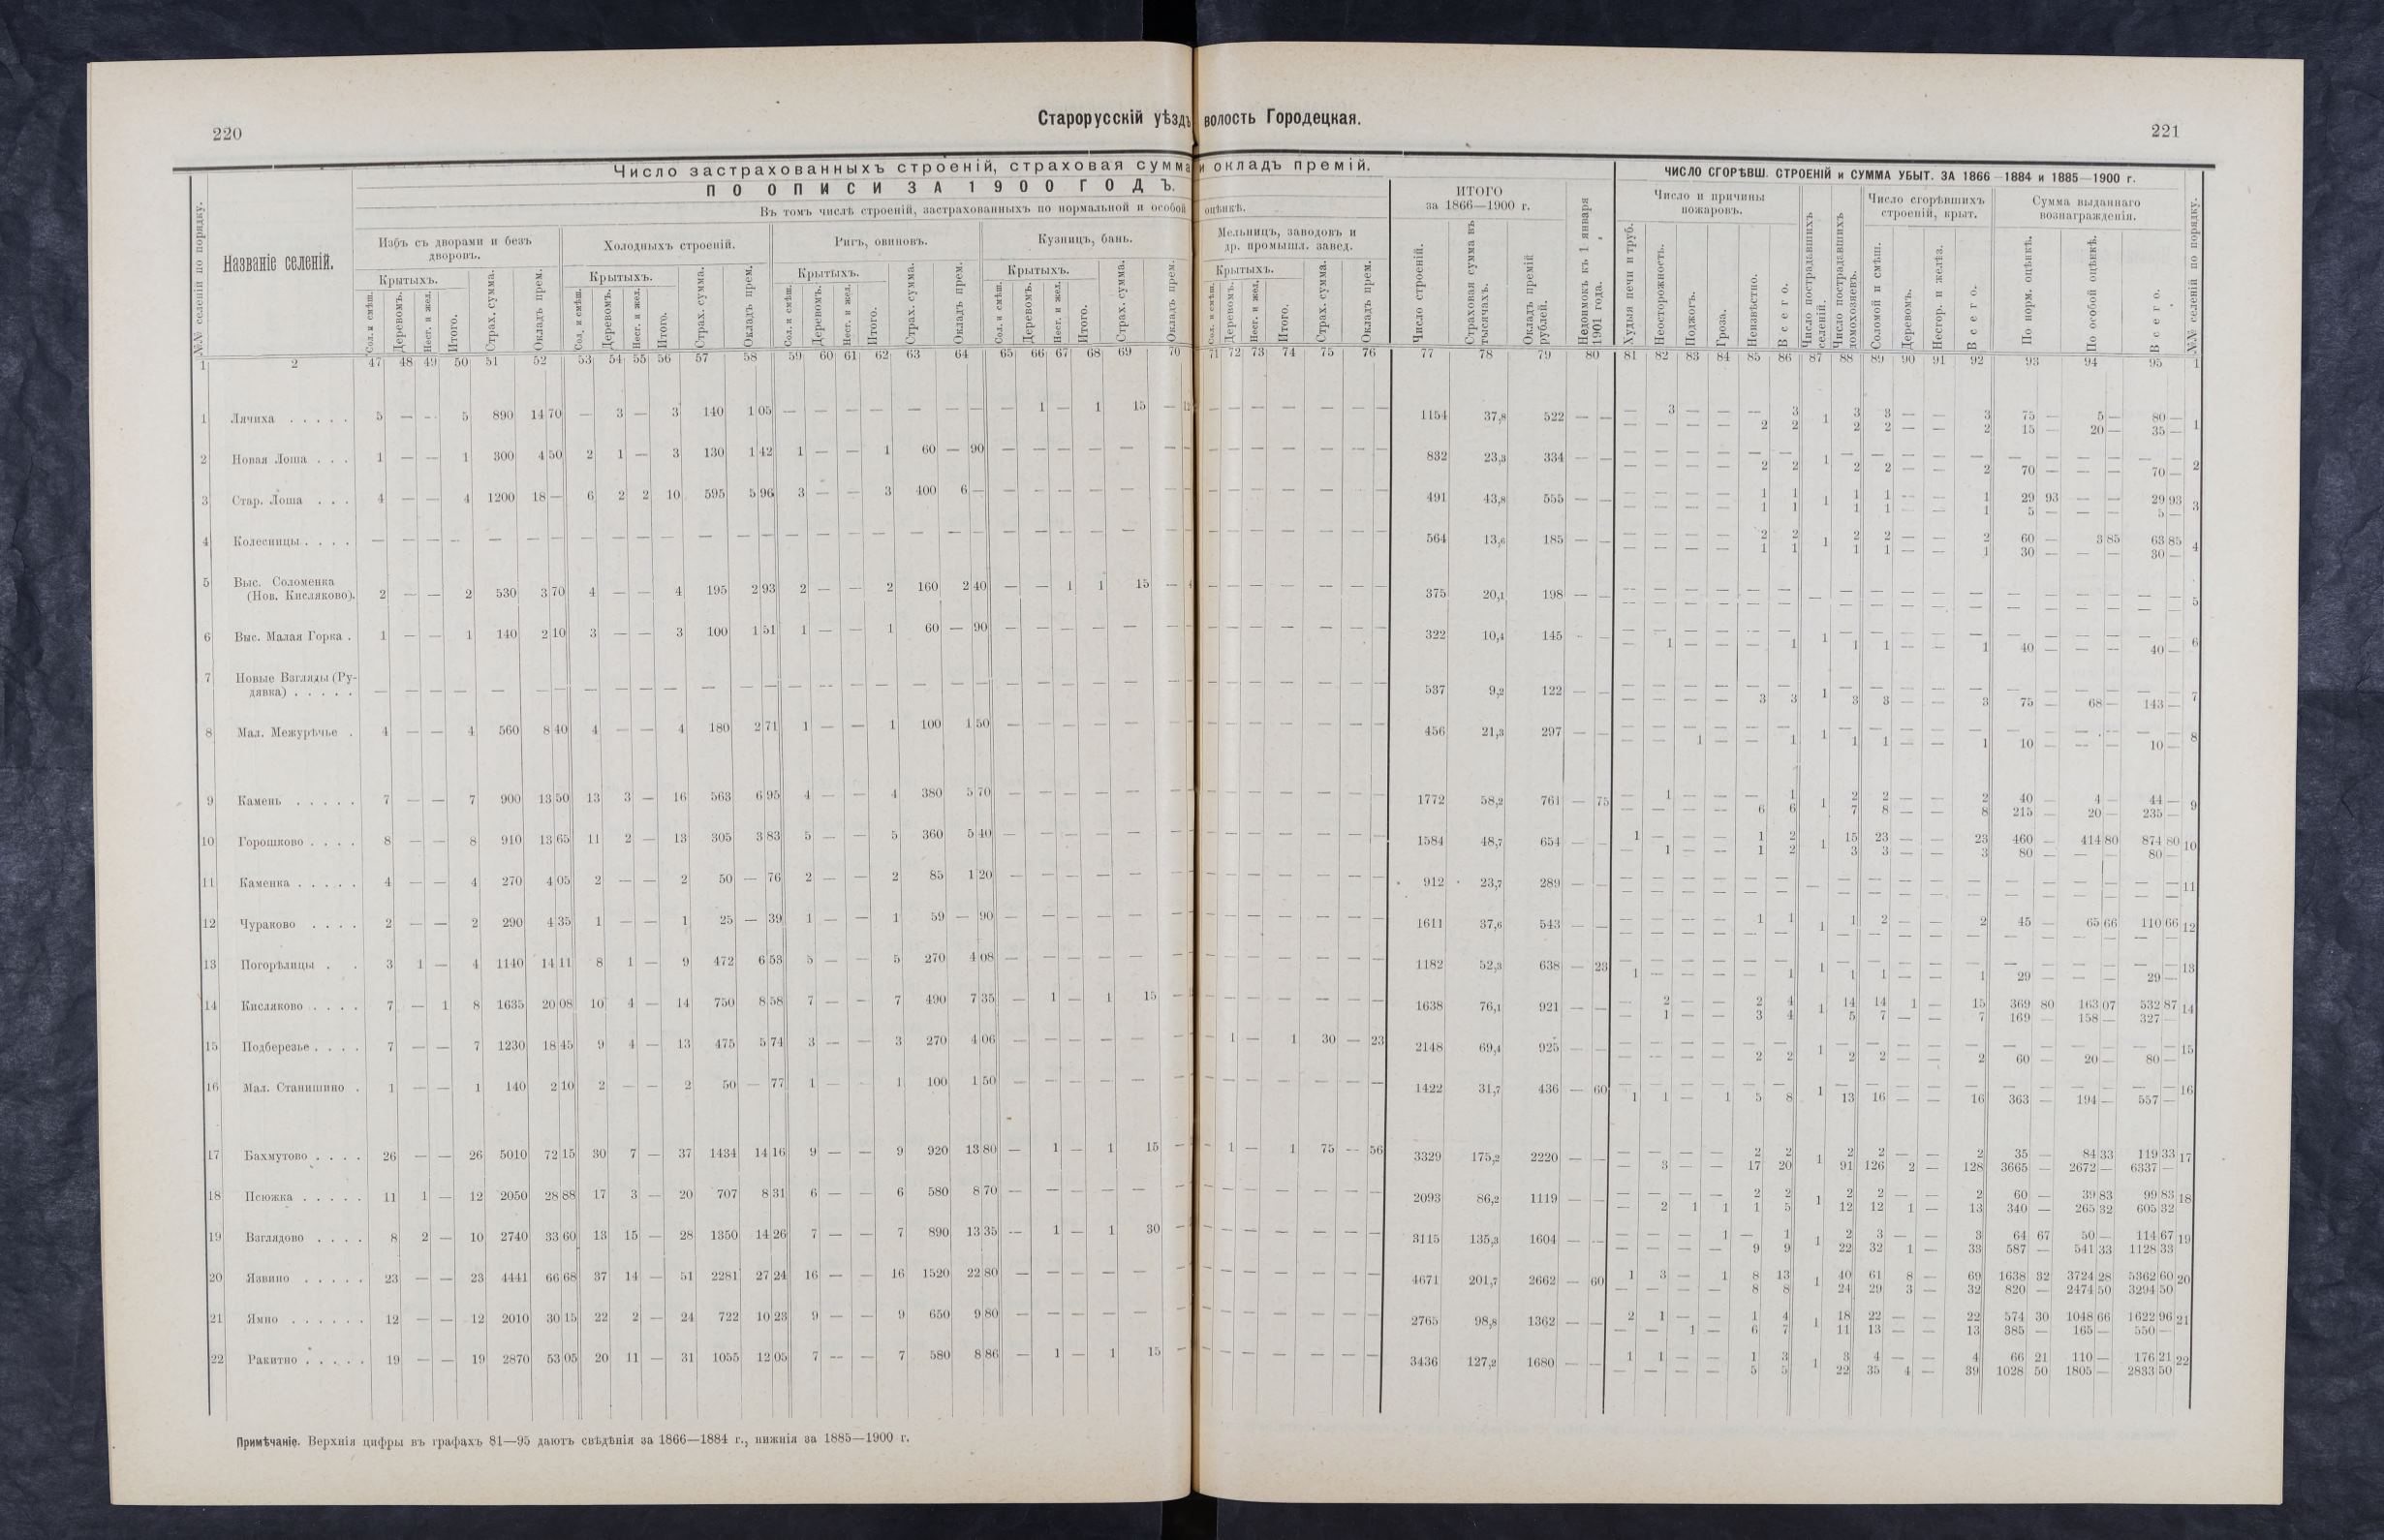 220
Старорусскій уѣздъ волость Городецкая.
221
Число застрахованныхъ строеній, страховая сумма и окладъ премій.
ПО ОПИСИ ЗА 1900 ГОДЪ.
Въ томъ числѣ строеній, застрахованныхъ по нормальной и особой оцѣнкѣ.
ИТОГО за 1866—1900 г.
ЧИСЛО СГОРѢВШ. СТРОЕНІЙ и СУММА УБЫТ. ЗА 1866—1884 и 1885—1900 г.
№№ селеній по порядку.
Названіе селеній.
Избъ съ дворами и безъ дворовъ.
Холодныхъ строеній.
Ригъ, овиновъ.
Кузницъ, бань.
Мельницъ, заводовъ и др. промышл. завед.
Число и причины пожаровъ.
Число сгорѣвшихъ строеній, крыт.
Сумма выданнаго вознагражденія.
Крытыхъ. Крытыхъ. Крытыхъ. Крытыхъ. Крытыхъ.
Сол. и смѣш. Деревомъ. Нест. и жел. Итого. Страх. сумма. Окладъ прем.
Сол. и смѣш. Деревомъ. Нест. и жел. Итого. Страх. сумма. Окладъ прем.
Сол. и смѣш. Деревомъ. Нест. и жел. Итого. Страх. сумма. Окладъ прем.
Сол. и смѣш. Деревомъ. Нест. и жел. Итого. Страх. сумма. Окладъ прем.
Сол. и смѣш. Деревомъ. Нест. и жел. Итого. Страх. сумма. Окладъ прем.
Число строеній. Страховая сумма въ тысячахъ. Окладъ премій рублей. Недоимокъ къ 1 января 1901 года.
Худыя печи и труб. Неосторожность. Поджогъ. Гроза. Неизвѣстно. Всего. Число пострадавшихъ селеній. Число пострадавшихъ домохозяевъ.
Соломой и смѣш. Деревомъ. Несгор. и желѣз. Всего. По норм. оцѣнкѣ. По особой оцѣнкѣ. Всего. №№ селеній по порядку.
1 2 47 48 49 50 51 52 53 54 55 56 57 58 59 60 61 62 63 64 65 66 67 68 69 70 71 72 73 74 75 76 77 78 79 80 81 82 83 84 85 86 87 88 89 90 91 92 93 94 95 1
1 Лячиха . . . . . 5 — — 5 890 14 70 — 3 — 3 140 1 05 — — — — — — — — 1 — 1 15 — — — — — — — — 1154 37,8 522 — — — 3 — — — 3 1 3 3 — — 3 75 — 5 — 80 — 1
— — — — 2 2 2 2 — — 2 15 — 20 — 35 —
2 Новая Лоша . . . 1 — — 1 300 4 50 2 1 — 3 130 1 42 1 — — 1 60 — 90 — — — — — — — — — — — — — 832 23,3 334 — — — — — — — — 1 — — — — — — — — — — — 2
— — — — 2 2 2 2 — — 2 70 — — — 70 —
3 Стар. Лоша . . . 4 — — 4 1200 18 — 6 2 2 10 595 5 96 3 — — 3 400 6 — — — — — — — — — — — — — — 491 43,8 555 — — — — — — 1 1 1 1 1 — — 1 29 93 — — 29 93 3
— — — — 1 1 1 1 — — 1 5 — — — 5 —
4 Колесницы . . . . — — — — — — — — — — — — — — — — — — — — — — — — — — — — — — 564 13,6 185 — — — — — — 2 2 1 2 2 — — 2 60 — 3 85 63 85 4
— — — — 1 1 1 1 — — 1 30 — — — 30 —
5 Выс. Соломенка
(Нов. Кисляково). 2 — — 2 530 3 70 4 — — 4 195 2 93 2 — — 2 160 2 40 — — 1 1 15 — — — — — — — 375 20,1 198 — — — — — — — — — — — — — — — — — — — — 5
— — — — — — — — — — — — — — — — —
6 Выс. Малая Горка . 1 — — 1 140 2 10 3 — — 3 100 1 51 1 — — 1 60 — 90 — — — — — — — — — — — — 322 10,4 145 — — — — — — — — 1 — — — — — — — — — — — 6
— 1 — — — 1 1 1 — — 1 40 — — — 40 —
7 Новые Взгляды (Ру-
дявка) . . . . . — — — — — — — — — — — — — — — — — — — — — — — — — — — — — — 537 9,2 122 — — — — — — — — 1 — — — — — — — — — — — 7
— — — — 3 3 3 3 — — 3 75 — 68 — 143 —
8 Мал. Межурѣчье . 4 — — 4 560 8 40 4 — — 4 180 2 71 1 — — 1 100 1 50 — — — — — — — — — — — — 456 21,3 297 — — — — — — — — 1 — — — — — — — — — — — 8
— — 1 — — 1 1 1 — — 1 10 — — — 10 —
9 Камень . . . . . 7 — — 7 900 13 50 13 3 — 16 563 6 95 4 — — 4 380 5 70 — — — — — — — — — — — — 1772 58,2 761 — 75 — 1 — — — 1 1 2 2 — — 2 40 — 4 — 44 — 9
— — — — 6 6 7 8 — — 8 215 — 20 — 235 —
10 Горошково . . . . 8 — — 8 910 13 65 11 2 — 13 305 3 83 5 — — 5 360 5 40 — — — — — — — — — — — — 1584 48,7 654 — — 1 — — — 1 2 1 15 23 — — 23 460 — 414 80 874 80 10
— 1 — — 1 2 3 3 — — 3 80 — — — 80 —
11 Каменка . . . . . 4 — — 4 270 4 05 2 — — 2 50 — 76 2 — — 2 85 1 20 — — — — — — — — — — — — 912 23,7 289 — — — — — — — — — — — — — — — — — — — — 11
— — — — — — — — — — — — — — — — —
12 Чураково . . . . 2 — — 2 290 4 35 1 — — 1 25 — 39 1 — — 1 59 — 90 — — — — — — — — — — — — 1611 37,6 543 — — — — — — 1 1 1 1 2 — — 2 45 — 65 66 110 66 12
— — — — — — — — — — — — — — — — —
13 Погорѣлицы . . 3 1 — 4 1140 14 11 8 1 — 9 472 6 53 5 — — 5 270 4 08 — — — — — — — — — — — — 1182 52,3 638 — 23 — — — — — — 1 — — — — — — — — — — — 13
1 — — — — 1 1 1 — — 1 29 — — — 29 —
14 Кисляково . . . . 7 — 1 8 1635 20 08 10 4 — 14 750 8 58 7 — — 7 490 7 35 — 1 — 1 15 — — — — — — — 1638 76,1 921 — — — 2 — — 2 4 1 14 14 1 — 15 369 80 163 07 532 87 14
— 1 — — 3 4 5 7 — — 7 169 — 158 — 327 —
15 Подберезье . . . . 7 — — 7 1230 18 45 9 4 — 13 475 5 74 3 — — 3 270 4 06 — — — — — — — 1 — 1 30 — 23 2148 69,4 925 — — — — — — — — 1 — — — — — — — — — — — 15
— — — — 2 2 2 2 — — 2 60 — 20 — 80 —
16 Мал. Станишино . 1 — — 1 140 2 10 2 — — 2 50 — 77 1 — — 1 100 1 50 — — — — — — — — — — — — 1422 31,7 436 — 60 — — — — — — 1 — — — — — — — — — — — 16
1 1 — 1 5 8 13 16 — — 16 363 — 194 — 557 —
17 Бахмутово . . . . 26 — — 26 5010 72 15 30 7 — 37 1434 14 16 9 — — 9 920 13 80 — 1 — 1 15 — — 1 — 1 75 — 56 3329 175,2 2220 — — — — — — 2 2 1 2 2 — — 2 35 — 84 33 119 33 17
— 3 — — 17 20 91 126 2 — 128 3665 — 2672 — 6337 —
18 Псюжка . . . . . 11 1 — 12 2050 28 88 17 3 — 20 707 8 31 6 — — 6 580 8 70 — — — — — — — — — — — — 2093 86,2 1119 — — — — — — 2 2 1 2 2 — — 2 60 — 39 83 99 83 18
— 2 1 1 1 5 12 12 1 — 13 340 — 265 32 605 32
19 Взглядово . . . . 8 2 — 10 2740 33 60 13 15 — 28 1350 14 26 7 — — 7 890 13 35 — 1 — 1 30 — — — — — — — 3115 135,3 1604 — — — — — 1 — 1 1 2 3 — — 3 64 67 50 — 114 67 19
— — — — 9 9 22 32 1 — 33 587 — 541 33 1128 33
20 Язвино . . . . . 23 — — 23 4441 66 68 37 14 — 51 2281 27 24 16 — — 16 1520 22 80 — — — — — — — — — — — — 4671 201,7 2662 — 60 1 3 — 1 8 13 1 40 61 8 — 69 1638 32 3724 28 5362 60 20
— — — — 8 8 24 29 3 — 32 820 — 2474 50 3294 50
21 Ямно . . . . . . 12 — — 12 2010 30 15 22 2 — 24 722 10 23 9 — — 9 650 9 80 — — — — — — — — — — — — 2765 98,8 1362 — — 2 1 — — 1 4 1 18 22 — — 22 574 30 1048 66 1622 96 21
— — 1 — 6 7 11 13 — — 13 385 — 165 — 550 —
22 Ракитно . . . . . 19 — — 19 2870 53 05 20 11 — 31 1055 12 05 7 — — 7 580 8 86 — 1 — 1 15 — — — — — — — 3436 127,2 1680 — — 1 1 — — 1 3 1 3 4 — — 4 66 21 110 — 176 21 22
— — — — 5 5 22 35 4 — 39 1028 50 1805 — 2833 50
Примѣчаніе. Верхнія цифры въ графахъ 81—95 даютъ свѣдѣнія за 1866—1884 г., нижнія за 1885—1900 г.